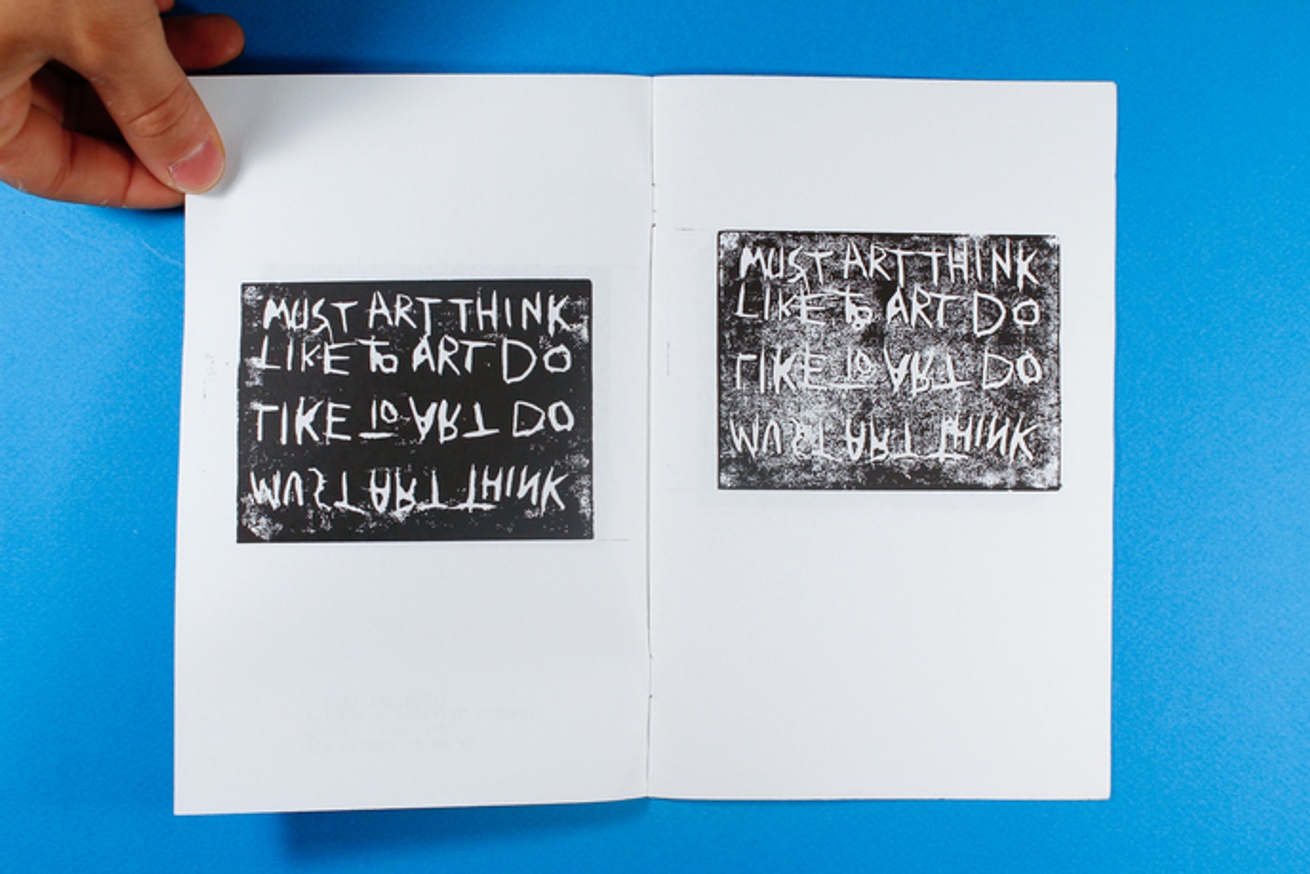 MUST ART THINK
LIKE TO ART DO
LIKE TO ART DO
MUST ART THINK
MUST ART THINK
LIKE TO ART DO
LIKE TO ART DO
MUST ART THINK